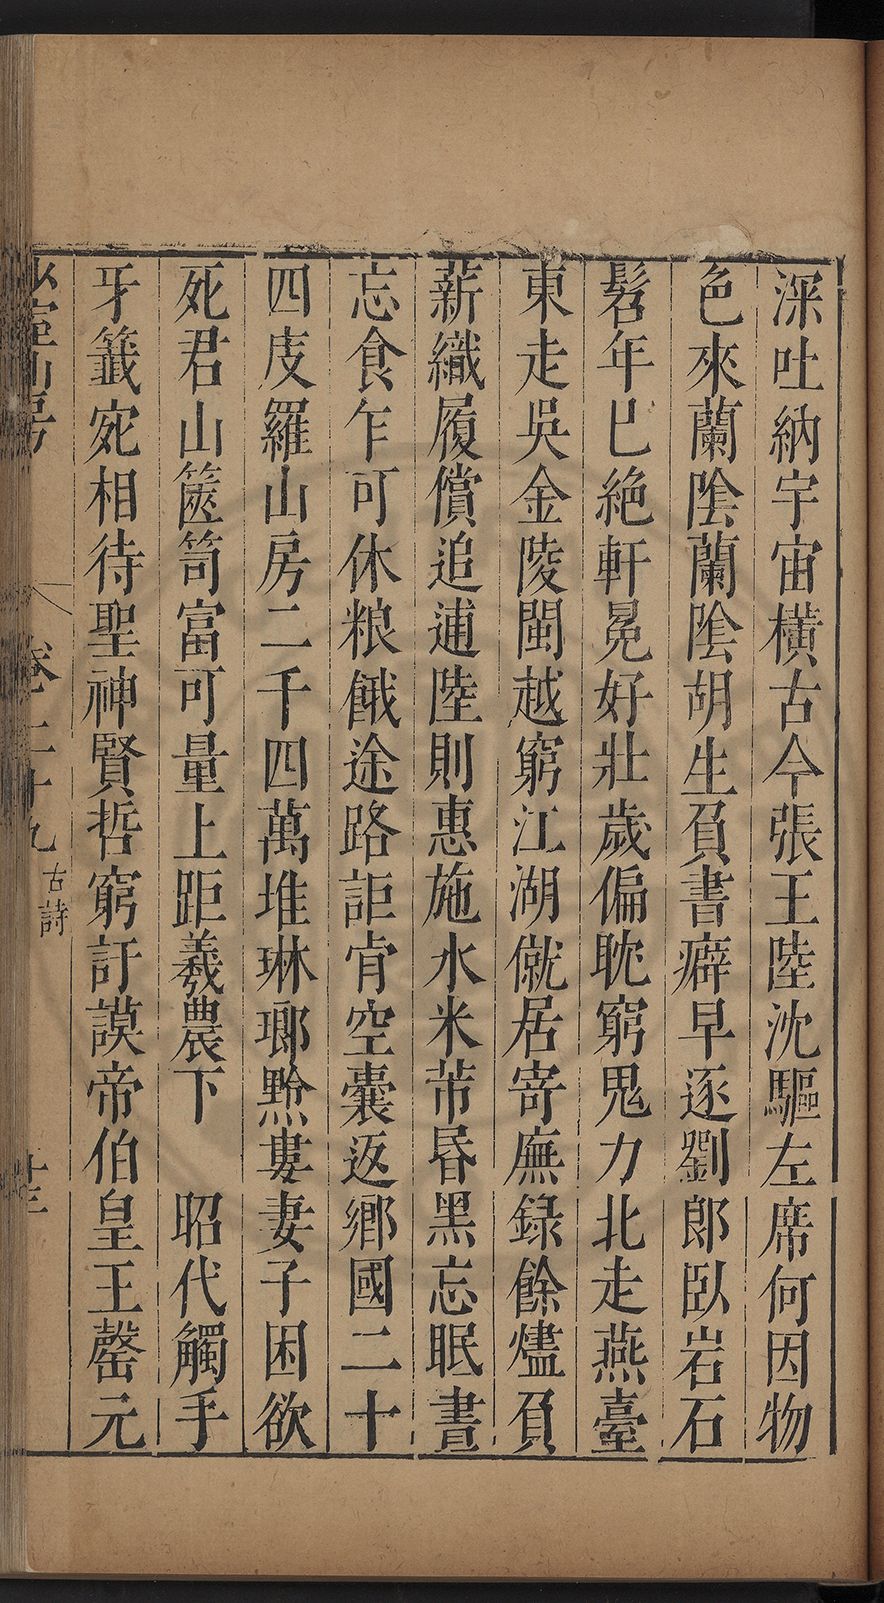 深吐納宇宙橫古今張王陸沈驅左席何因物
色來蘭陰蘭陰胡生負書癖早逐劉郎臥岩石
髫年已絶軒冕好壯歲偏耽窮鬼力北走燕臺
東走吳金陵閩越窮江湖僦居寄廡錄餘燼負
薪織履償追逋陸則惠施水米芾昏黑忘眠晝
忘食乍可休粮餓途路詎肯空囊返鄉國二十
四庋羅山房二千四萬堆琳瑯黔婁妻子困欲
死君山篋笥富可量上距羲農下　昭代觸手
牙籤宛相待聖神賢哲窮訏謨帝伯皇王罄元
少室山房
卷二十九
古詩
十三